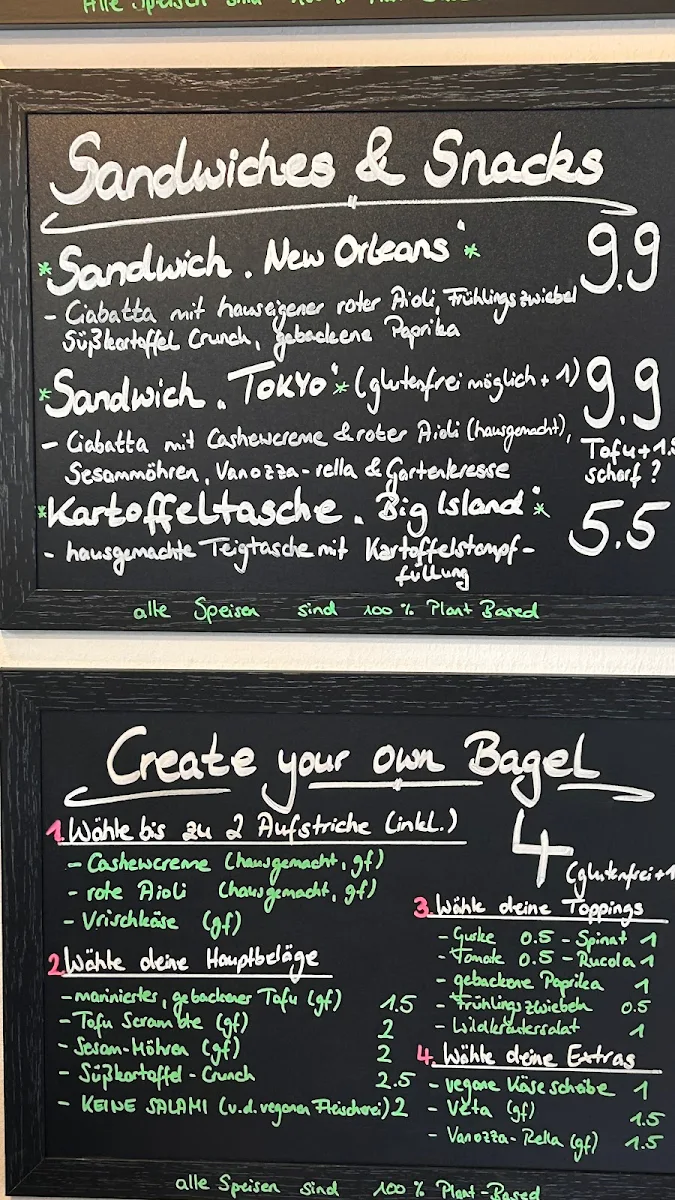 Alle Speisen sind 100 %
Sandwiches & Snacks
*Sandwich „New Orleans“* 9.9
- Ciabatta mit hauseigener roter Aioli, Frühlingszwiebel
Süßkartoffel Crunch, gebackene Paprika
*Sandwich „TOKYO“* (glutenfrei möglich + 1) 9.9
- Ciabatta mit Cashewcreme & roter Aioli (hausgemacht),
Sesammöhren, Vanozza-rella & Gartenkresse
Tofu + 1.5
scharf ?
*Kartoffeltasche „Big Island“* 5.5
- hausgemachte Teigtasche mit Kartoffelstampf-
füllung
alle Speisen sind 100 % Plant Based
Create your own Bagel
4
(glutenfrei + 1
1. Wähle bis zu 2 Aufstriche (inkl.)
- Cashewcreme (hausgemacht, gf)
- rote Aioli (hausgemacht, gf)
- Vrischkäse (gf)
2. Wähle deine Hauptbeläge
- marinierter, gebackener Tofu (gf) 1.5
- Tofu Scramble (gf) 2
- Sesam-Möhren (gf) 2
- Süßkartoffel-Crunch 2.5
- KEINE SALAMI (v.d. veganen Fleischerei) 2
3. Wähle deine Toppings
- Gurke 0.5 - Spinat 1
- Tomate 0.5 - Rucola 1
- gebackene Paprika 1
- Frühlingszwiebeln 0.5
- Wildkräutersalat 1
4. Wähle deine Extras
- vegane Käsescheibe 1
- Veta (gf) 1.5
- Vanozza-Rella (gf) 1.5
alle Speisen sind 100 % Plant-Based